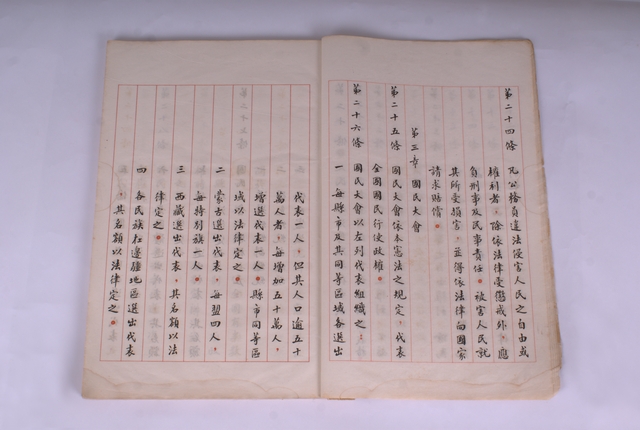 第二十四條 凡公務員違法侵害人民之自由或
權利者，除依法律受懲戒外，應
負刑事及民事責任。被害人民就
其所受損害，並得依法律向國家
請求賠償。
第三章 國民大會
第二十五條 國民大會依本憲法之規定，代表
全國國民行使政權。
第二十六條 國民大會以左列代表組織之：
一 每縣市及其同等區域各選出
代表一人，但其人口逾五十
萬人者，每增加五十萬人，
增選代表一人。縣市同等區
域以法律定之。
二 蒙古選出代表，每盟四人，
每特別旗一人。
三 西藏選出代表，其名額以法
律定之。
四 各民族在邊疆地區選出代表
，其名額以法律定之。